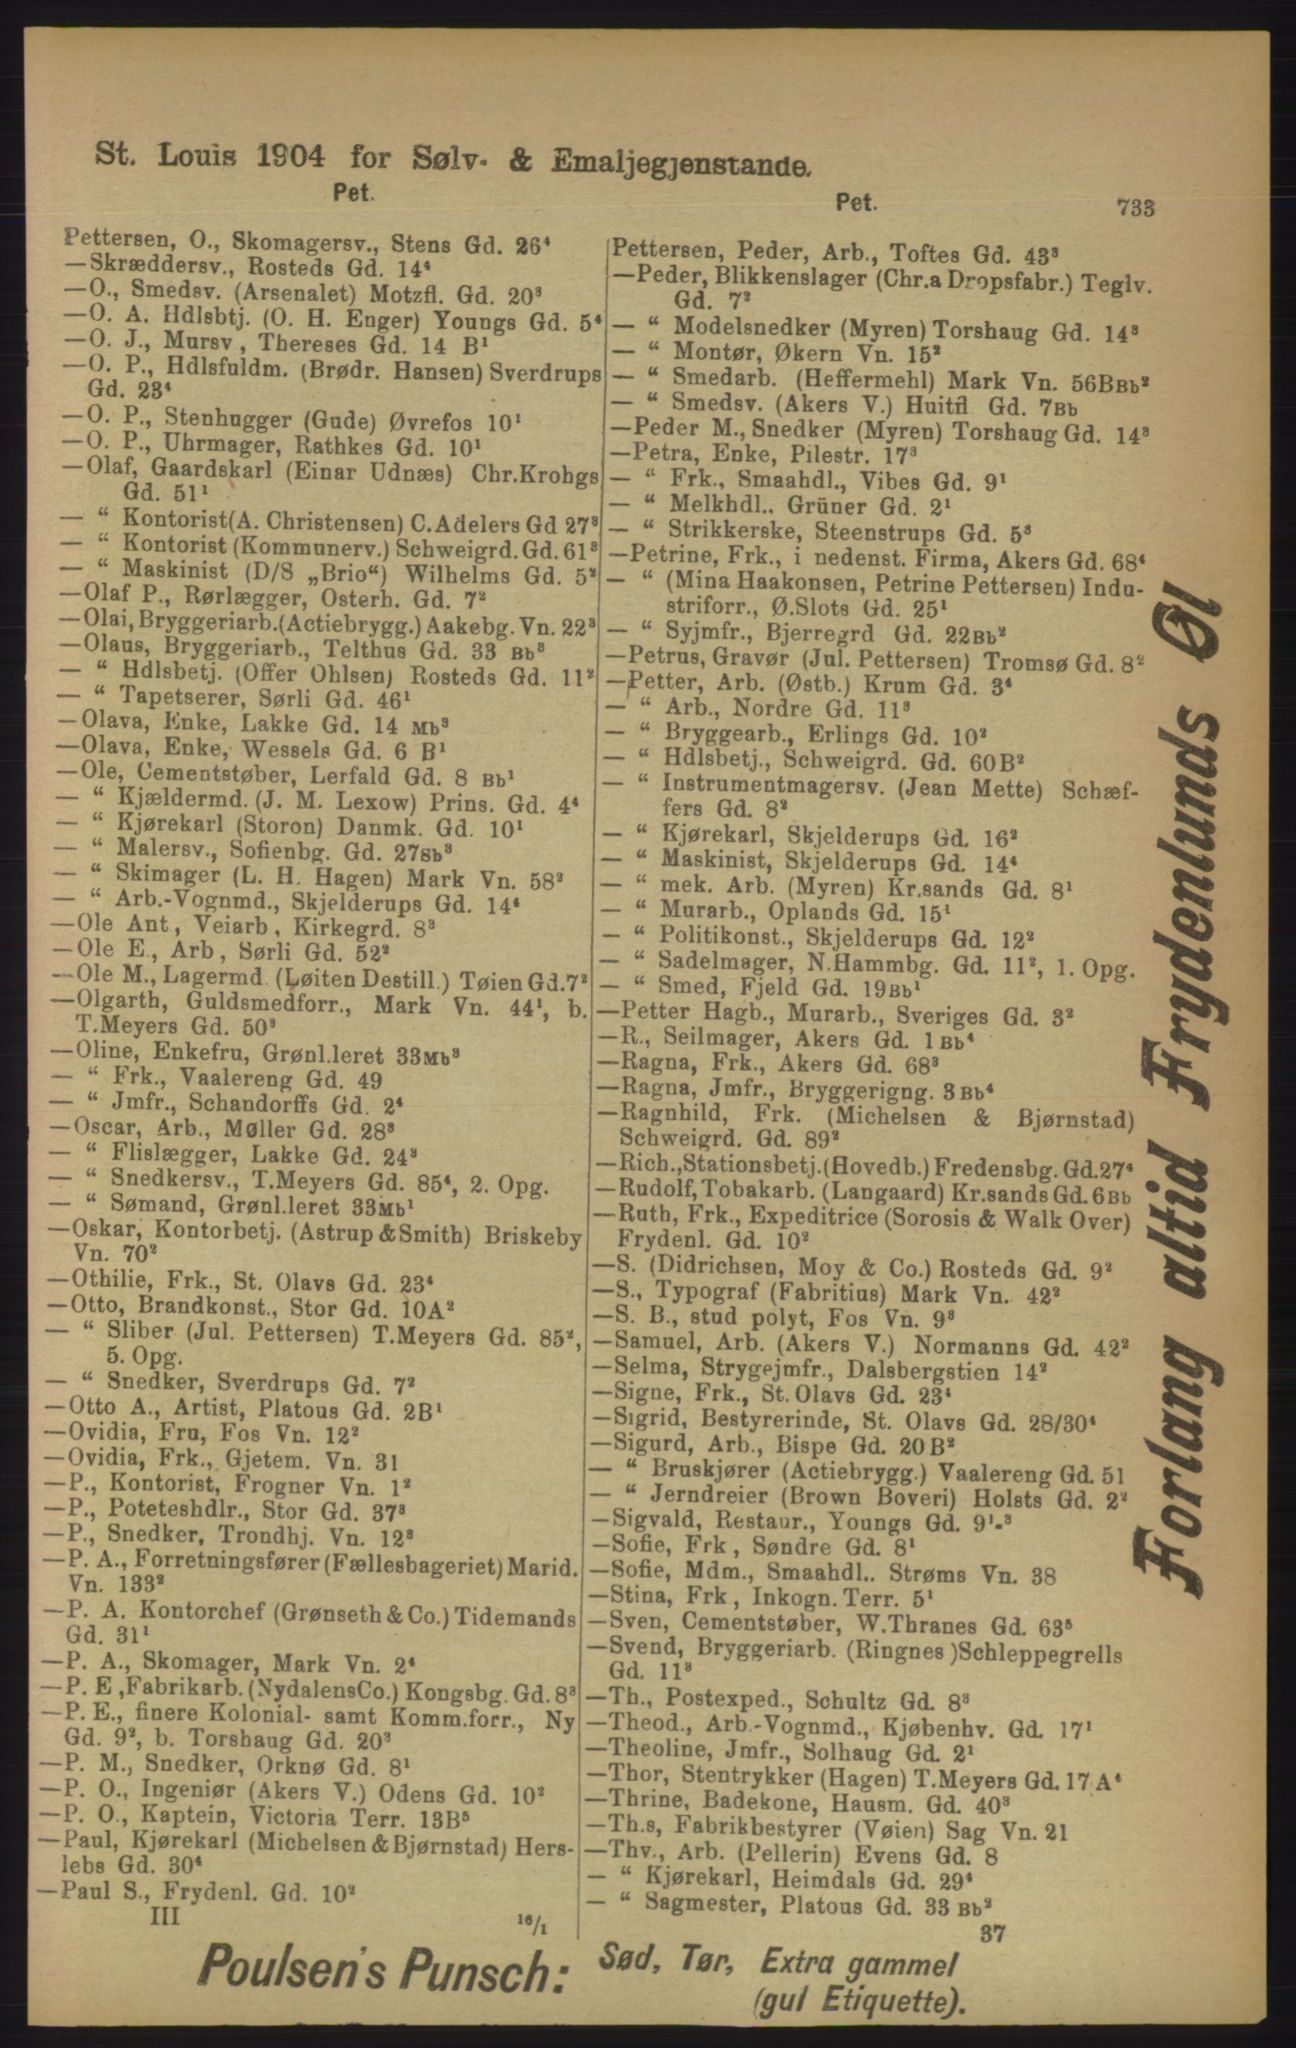 St. Louis 1904 for Sølv- & Emaljegjenstande.
Pet.
Pet.
733
Pettersen, O., Skomagersv., Stens Gd. 26⁴
—Skræddersv., Rosteds Gd. 14⁴
—O., Smedsv. (Arsenalet) Motzfl. Gd. 20³
—O. A. Hdlsbtj. (O. H. Enger) Youngs Gd. 5⁴
—O. J., Mursv, Thereses Gd. 14 B¹
—O. P., Hdlsfuldm. (Brødr. Hansen) Sverdrups
Gd. 23⁴
—O. P., Stenhugger (Gude) Øvrefos 10¹
—O. P., Uhrmager, Rathkes Gd. 10¹
—Olaf, Gaardskarl (Einar Udnæs) Chr.Krohgs
Gd. 51¹
— “ Kontorist(A. Christensen) C.Adelers Gd 27³
— “ Kontorist (Kommunerv.) Schweigrd. Gd. 61³
— “ Maskinist (D/S „Brio“) Wilhelms Gd. 5²
—Olaf P., Rørlægger, Osterh. Gd. 7²
—Olai, Bryggeriarb.(Actiebrygg.) Aakebg. Vn. 22³
—Olaus, Bryggeriarb., Telthus Gd. 33 Bb³
— “ Hdlsbetj. (Offer Ohlsen) Rosteds Gd. 11²
— “ Tapetserer, Sørli Gd. 46¹
—Olava, Enke, Lakke Gd. 14 Mb³
—Olava, Enke, Wessels Gd. 6 B¹
—Ole, Cementstøber, Lerfald Gd. 8 Bb¹
— “ Kjældermd. (J. M. Lexow) Prins. Gd. 4⁴
— “ Kjørekarl (Storon) Danmk. Gd. 10¹
— “ Malersv., Sofienbg. Gd. 27Sb³
— “ Skimager (L. H. Hagen) Mark Vn. 58²
— “ Arb.-Vognmd., Skjelderups Gd. 14⁴
—Ole Ant, Veiarb, Kirkegrd. 8³
—Ole E., Arb, Sørli Gd. 52²
—Ole M., Lagermd. (Løiten Destill.) Tøien Gd.7²
—Olgarth, Guldsmedforr., Mark Vn. 44¹, b.
T.Meyers Gd. 50³
—Oline, Enkefru, Grønl.leret 33Mb³
— “ Frk., Vaalereng Gd. 49
— “ Jmfr., Schandorffs Gd. 2⁴
—Oscar, Arb., Møller Gd. 28³
— “ Flislægger, Lakke Gd. 24³
— “ Snedkersv., T.Meyers Gd. 85⁴, 2. Opg.
— “ Sømand, Grønl.leret 33Mb¹
—Oskar, Kontorbetj. (Astrup & Smith) Briskeby
Vn. 70²
—Othilie, Frk., St. Olavs Gd. 23⁴
—Otto, Brandkonst., Stor Gd. 10A²
— “ Sliber (Jul. Pettersen) T.Meyers Gd. 85²,
5. Opg.
— “ Snedker, Sverdrups Gd. 7²
—Otto A., Artist, Platous Gd. 2B¹
—Ovidia, Fru, Fos Vn. 12²
—Ovidia, Frk., Gjetem. Vn. 31
—P., Kontorist, Frogner Vn. 1²
—P., Poteteshdlr., Stor Gd. 37³
—P., Snedker, Trondhj. Vn. 12³
—P. A., Forretningsfører (Fællesbageriet) Marid.
Vn. 133²
—P. A. Kontorchef (Grønseth & Co.) Tidemands
Gd. 31¹
—P. A., Skomager, Mark Vn. 2⁴
—P. E ,Fabrikarb. (NydalensCo.) Kongsbg. Gd. 8³
—P. E., finere Kolonial- samt Komm.forr., Ny
Gd. 9², b. Torshaug Gd. 20³
—P. M., Snedker, Orknø Gd. 8¹
—P. O., Ingeniør (Akers V.) Odens Gd. 10²
—P. O., Kaptein, Victoria Terr. 13B⁵
—Paul, Kjørekarl (Michelsen & Bjørnstad) Hers-
lebs Gd. 30⁴
—Paul S., Frydenl. Gd. 10²
III
16/1
Pettersen, Peder, Arb., Toftes Gd. 43³
—Peder, Blikkenslager (Chr.a Dropsfabr.) Teglv.
Gd. 7²
— “ Modelsnedker (Myren) Torshaug Gd. 14³
— “ Montør, Økern Vn. 15²
— “ Smedarb. (Heffermehl) Mark Vn. 56BBb²
— “ Smedsv. (Akers V.) Huitfl Gd. 7Bb
—Peder M., Snedker (Myren) Torshaug Gd. 14³
—Petra, Enke, Pilestr. 17³
— “ Frk., Smaahdl., Vibes Gd. 9¹
— “ Melkhdl.. Grüner Gd. 2¹
— “ Strikkerske, Steenstrups Gd. 5³
—Petrine, Frk., i nedenst. Firma, Akers Gd. 68⁴
— “ (Mina Haakonsen, Petrine Pettersen) Indu-
striforr., Ø.Slots Gd. 25¹
— “ Syjmfr., Bjerregrd Gd. 22Bb²
—Petrus, Gravør (Jul. Pettersen) Tromsø Gd. 8²
—Petter, Arb. (Østb.) Krum Gd. 3⁴
— “ Arb., Nordre Gd. 11³
— “ Bryggearb., Erlings Gd. 10²
— “ Hdlsbetj., Schweigrd. Gd. 60B²
— “ Instrumentmagersv. (Jean Mette) Schæf-
fers Gd. 8²
— “ Kjørekarl, Skjelderups Gd. 16²
— “ Maskinist, Skjelderups Gd. 14⁴
— “ mek. Arb. (Myren) Kr.sands Gd. 8¹
— “ Murarb., Oplands Gd. 15¹
— “ Politikonst., Skjelderups Gd. 12²
— “ Sadelmager, N.Hammbg. Gd. 11², 1. Opg.
— “ Smed, Fjeld Gd. 19Bb¹
—Petter Hagb., Murarb., Sveriges Gd. 3²
—R., Seilmager, Akers Gd. 1 Bb⁴
—Ragna, Frk., Akers Gd. 68³
—Ragna, Jmfr., Bryggerigng. 3 Bb⁴
—Ragnhild, Frk. (Michelsen & Bjørnstad)
Schweigrd. Gd. 89²
—Rich.,Stationsbetj.(Hovedb.) Fredensbg. Gd.27⁴
—Rudolf, Tobakarb. (Langaard) Kr.sands Gd. 6Bb
—Ruth, Frk., Expeditrice (Sorosis & Walk Over)
Frydenl. Gd. 10²
—S. (Didrichsen, Moy & Co.) Rosteds Gd. 9²
—S., Typograf (Fabritius) Mark Vn. 42²
—S. B., stud polyt, Fos Vn. 9³
—Samuel, Arb. (Akers V.) Normanns Gd. 42²
—Selma, Strygejmfr., Dalsbergstien 14²
—Signe, Frk., St. Olavs Gd. 23⁴
—Sigrid, Bestyrerinde, St. Olavs Gd. 28/30⁴
—Sigurd, Arb., Bispe Gd. 20 B²
— “ Bruskjører (Actiebrygg.) Vaalereng Gd. 51
— “ Jerndreier (Brown Boveri) Holsts Gd. 2²
—Sigvald, Restaur., Youngs Gd. 9¹-³
—Sofie, Frk, Søndre Gd. 8¹
—Sofie, Mdm., Smaahdl.. Strøms Vn. 38
—Stina, Frk, Inkogn. Terr. 5¹
—Sven, Cementstøber, W.Thranes Gd. 63⁵
—Svend, Bryggeriarb. (Ringnes )Schleppegrells
Gd. 11³
—Th., Postexped., Schultz Gd. 8³
—Theod., Arb.-Vognmd., Kjøbenhv. Gd. 17¹
—Theoline, Jmfr., Solhaug Gd. 2¹
—Thor, Stentrykker (Hagen) T.Meyers Gd. 17 A⁴
—Thrine, Badekone, Hausm. Gd. 40³
—Th.s, Fabrikbestyrer (Vøien) Sag Vn. 21
—Thv., Arb. (Pellerin) Evens Gd. 8
— “ Kjørekarl, Heimdals Gd. 29⁴
— “ Sagmester, Platous Gd. 33 Bb²
37
Forlang altid Frydenlunds Øl
Poulsen's Punsch:
Sød, Tør, Extra gammel
(gul Etiquette).